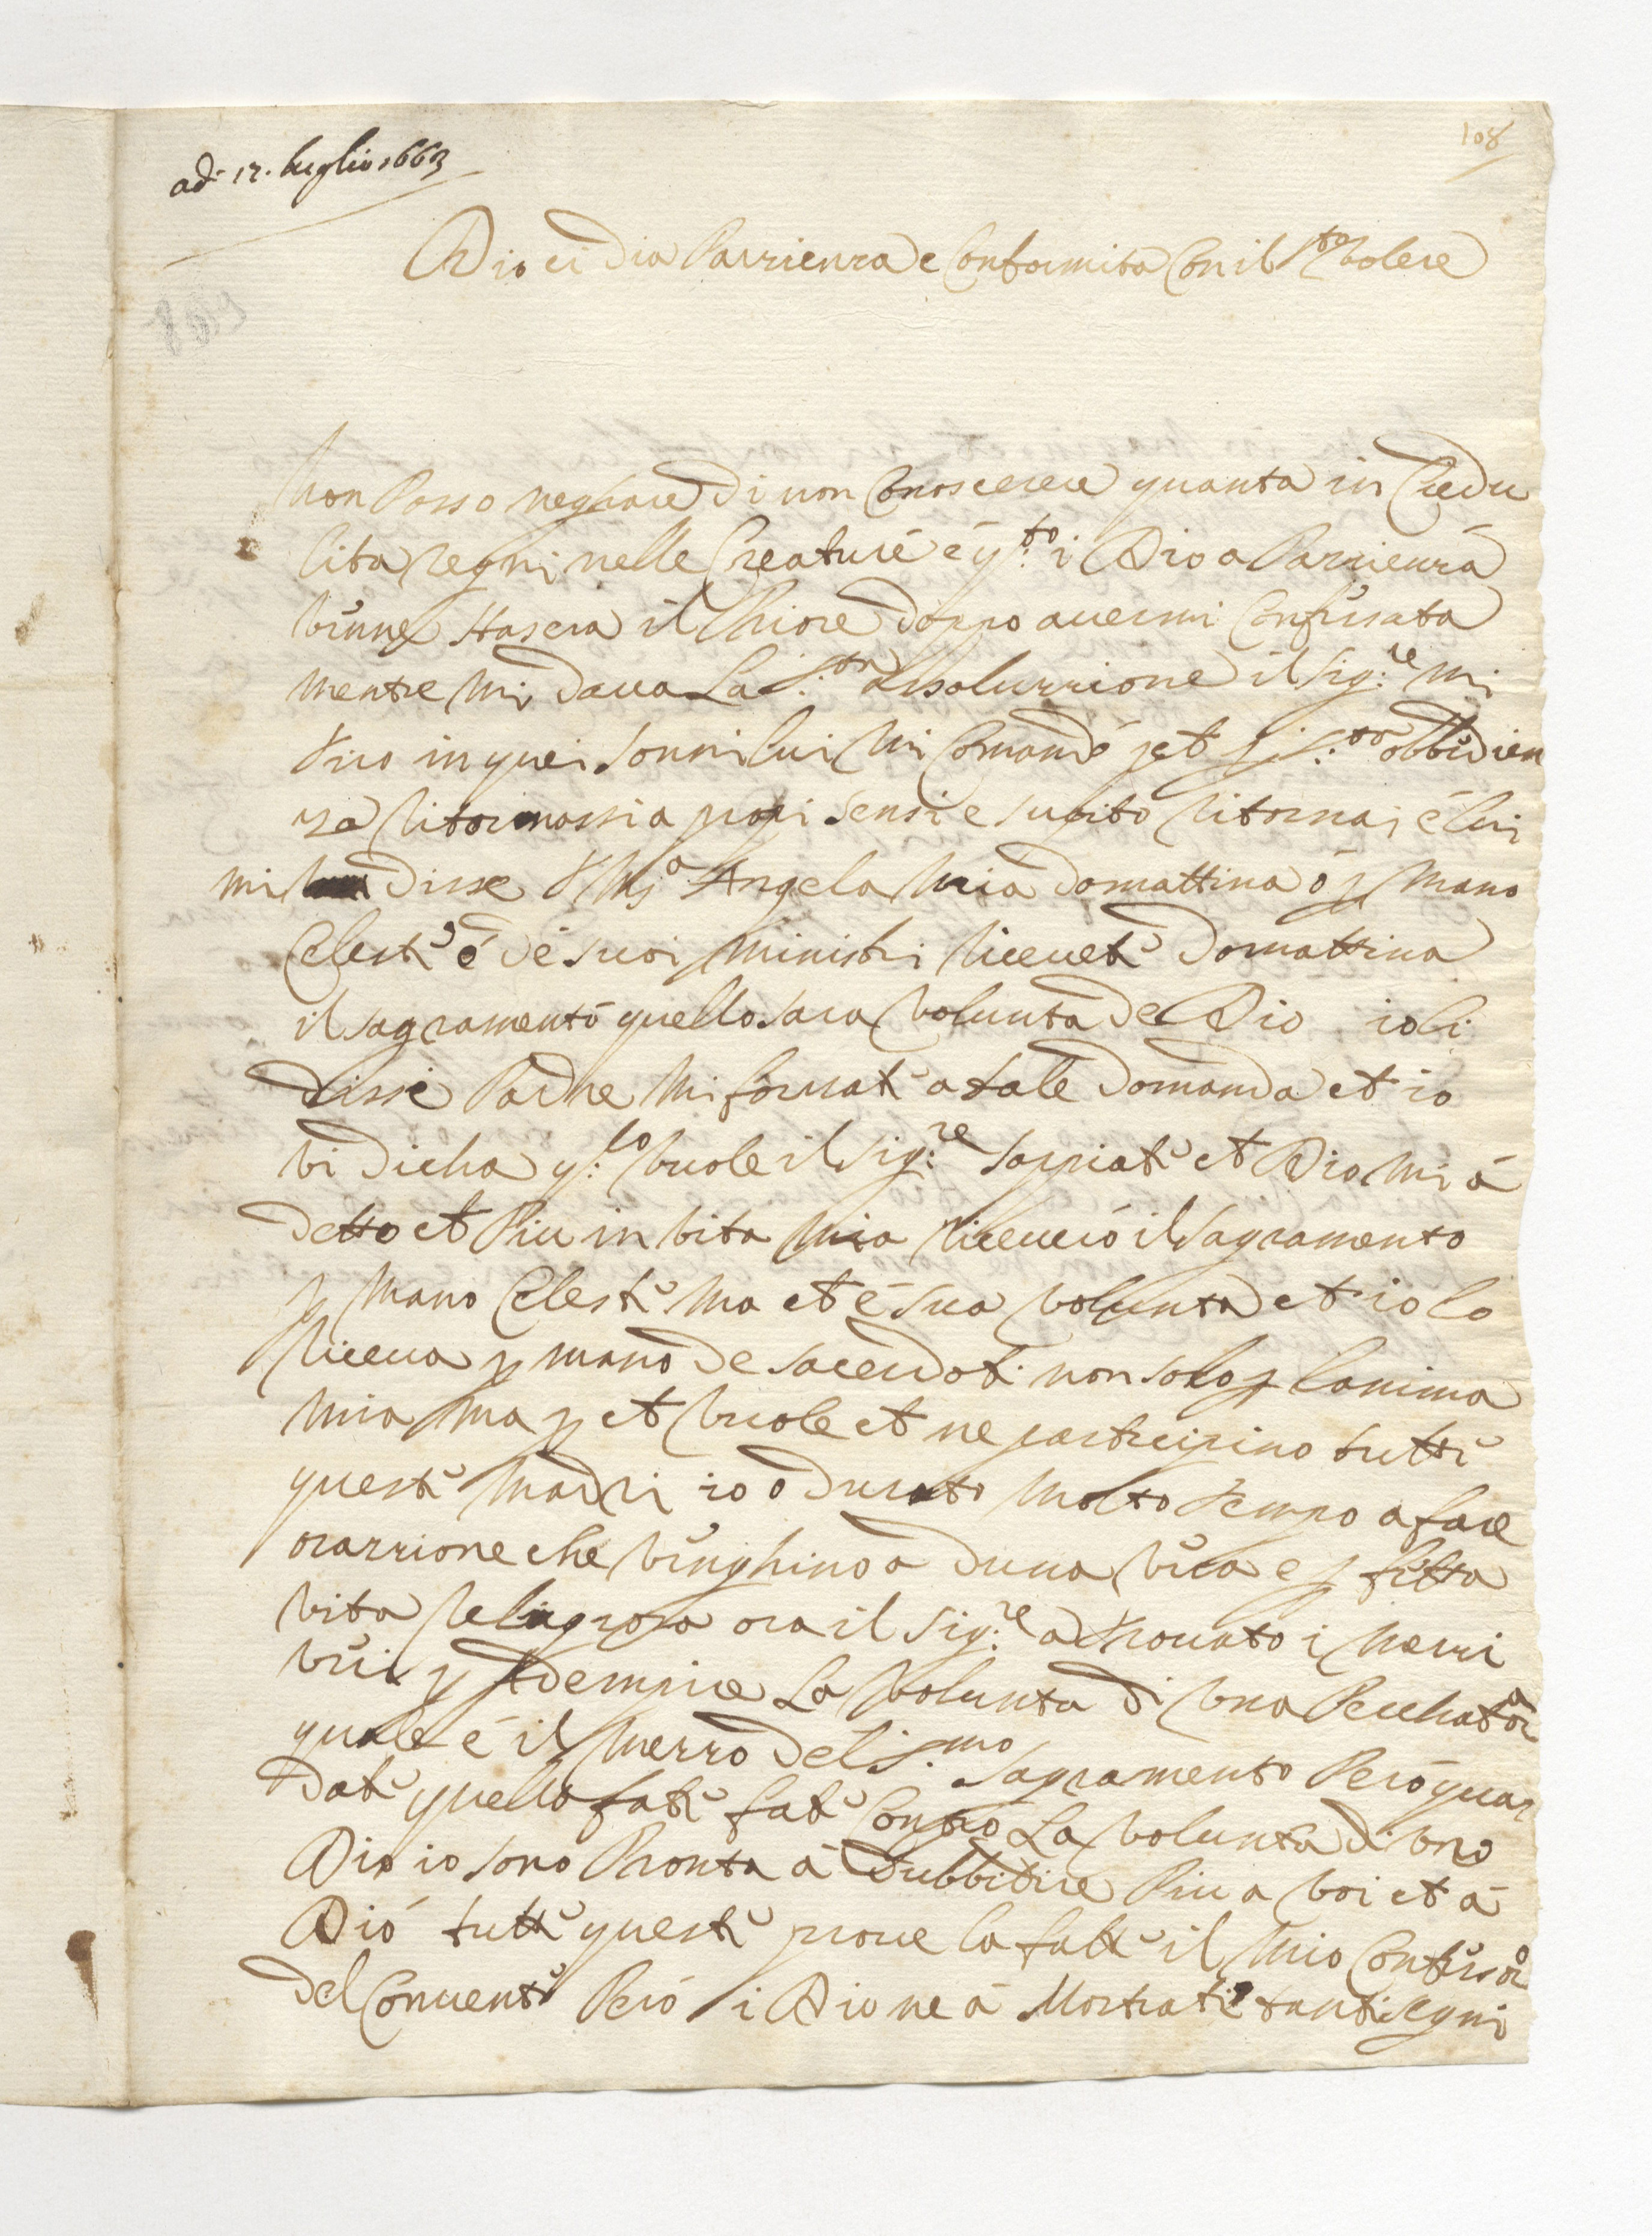 108
adi 12. luglio 1663
Dio ci dia Pazzienza e Conformita Con il S.to volere
non Posso neghare di non Conoscerere quanta in Credu
lita regni nelle Creature é q:to i Dio a Pazzienza
vinne stasera il Priore doppo auermi Confissata
mentre mi daua La S:ta Assoluzzione il Sig:re mi
tiro in quei sonni lui mi Comandó pet p S:ta obbidien
za ritornassi a propi sensi e subito ritornai é lui
mi disse Angela mia domattina ó p mano
Celesti ó dé suoi ministri riceueti domattina
il sagramento quello sara volunta de Dio io li
dissi Padre mi forzati a tale domanda et io
vi dicha q:lo vuole il Sig:re sappiati et Dio mi á
detto et Piu in vita mia riceueró il sagramento
p mano Celesti ma et é sua volunta et io lo
riceua p mano de sacerdoti non solo p lanima
mia ma p et vuole et ne partecipino tutti
questi madri io o durato molto tempo a fare
orazzione che vinghino a duna vira e p fitta
vita religiosa ora il Sig:re a trouato i mezzi
vivi p Adempire La Volunta di una Pecchatora
quale é il mezzo del S.mo Sagramento Peró guar
dati quello fati fati Contro La volunta di uno
Dio io sono Pronta á dubbidire Piu a voi et á
Dió tutti questi proue la fatti il mio Confissor
del Conuento Peró i Dio ne á Mostrati tanti segni